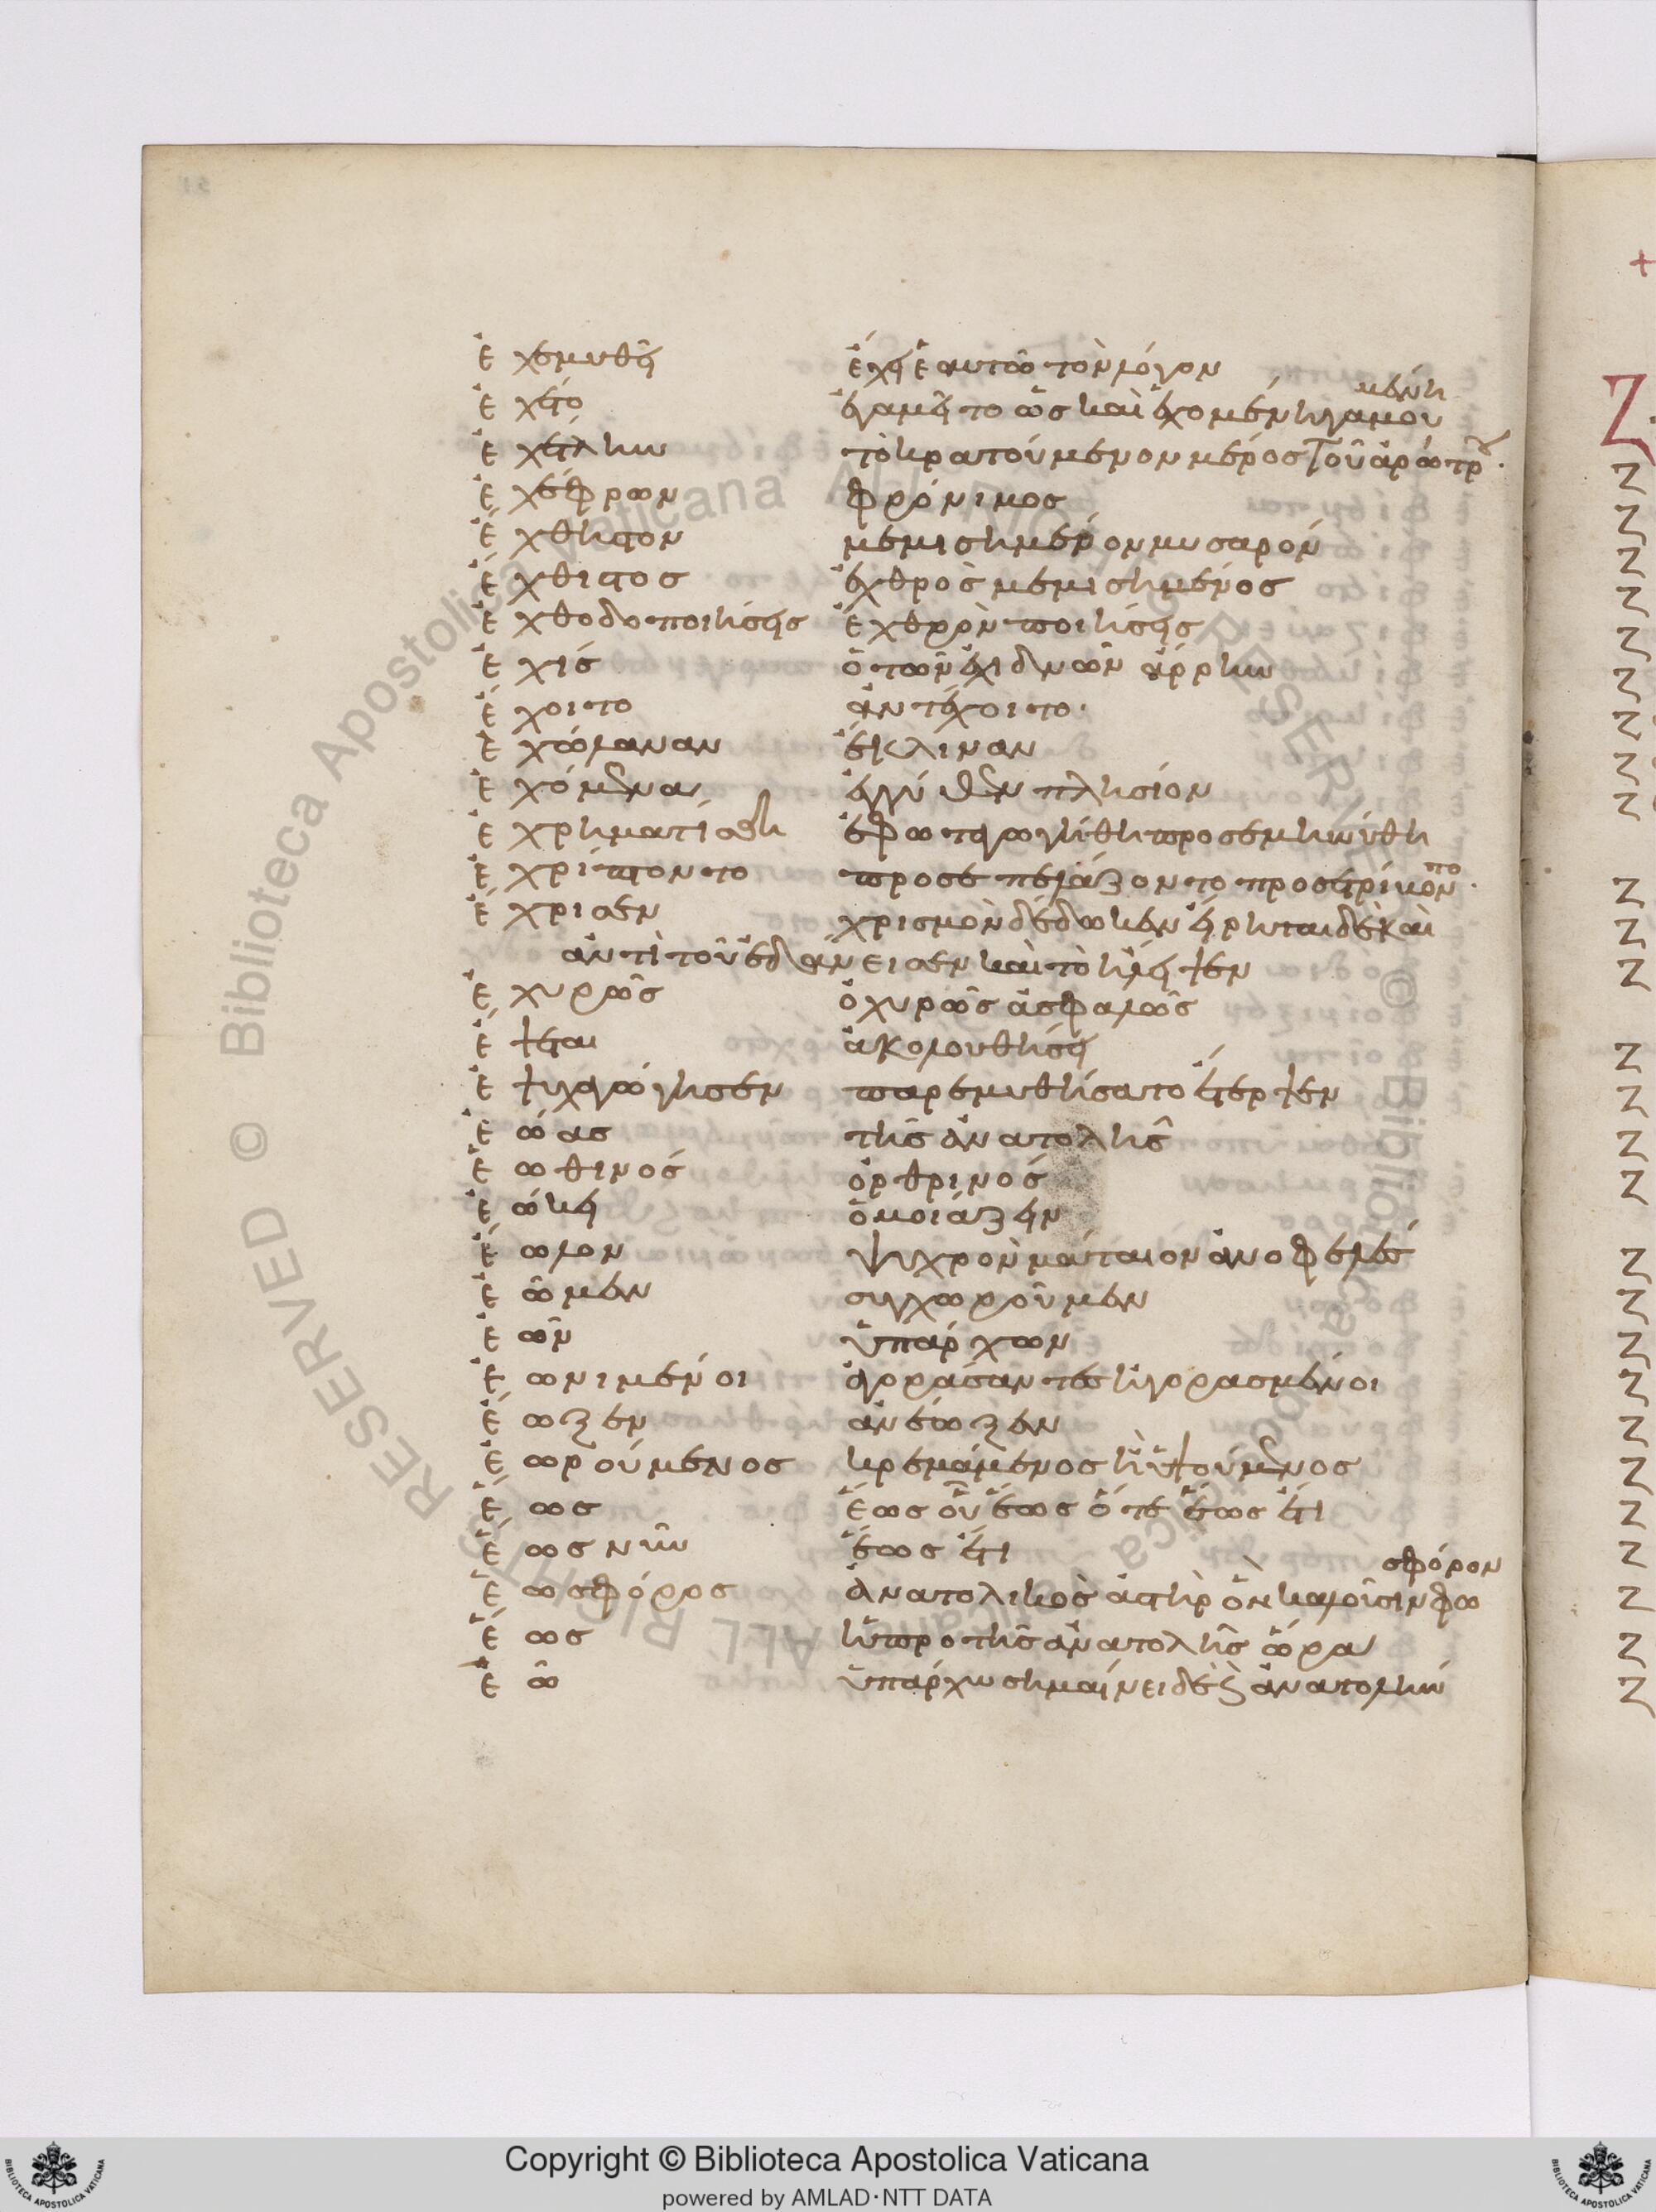 ἐχεμυθεῖ ἔχει ἐαυτῶ τὸν λόγον
ἔχετο ἐγαμεῖτο ὡς καὶ ἐχομένη γαμου μένη
ἐχέτλην τὸ κρατούμενον μέρος τοῦ ἀρότρου
ἐχέφρων φρόνιμος
ἔχθιστον μεμισημένον μυσαρόν
ἔχθιστος ἐχθρὸς μεμισημένος
ἐχθοδοποιήσεις ἐχθρὸν ποιήσεις
ἐχις ὁ τῶν ἐχιδνῶν ἄρρην
ἔχοιτο ἀντέχοιτο
ἐχώλαναν ἔκλιναν
ἐχόμενα ἐγγύθεν πλησίον
ἐχρηματίσθη ἐφωταγωγήθη προσεμηνύθη
ἐχρίπτοντο προσεπελάζοντο προσερίπτοντο
ἔχρισεν χρισμὸν δέδωκεν εἴρηται δὲ καὶ
ἀντὶ τοῦ ἐδάνεισεν καὶ τὸ ἤλειψεν
ἐχυρῶς ὀχυρῶς ἀσφαλῶς
ἕψεται ἀκολουθήσει
ἐψυχαγώγησεν παρεμυθήσατο ἔτερψεν
ἐώας τῆς ἀνατολῆς
ἐωθινός ὀρθρινός
ἐώκει ὁμοίαζεν
ἔωλον ψυχρὸν μάταιον ἀνοφελές
ἐῶμεν συγχωροῦμεν
ἐῶν ὑπάρχων
ἐωνιμένοι ἀγοράσαντες ἠγορασμένοι
ἔωζεν ἀνέωζεν
ἐωρούμενος κρεμάμενος ἢ ὑψούμενος
ἕως ἕως οὗ ἕως ὅτε ἕως ἔτι
ἕως νῦν ἕως ἔτι
ἑωσφόρος ἀνατολικὸς ἀστὴρ ὃν καλοῦσιν φωσφόρον
ἕως ἡ προ τῆς ἀνατολῆς ὥρα
ἐῶ ὑπάρχω σημαίνει δὲ ξ ἀνατολήν
Copyright © Biblioteca Apostolica Vaticana
powered by AMLAD·NTT DATA